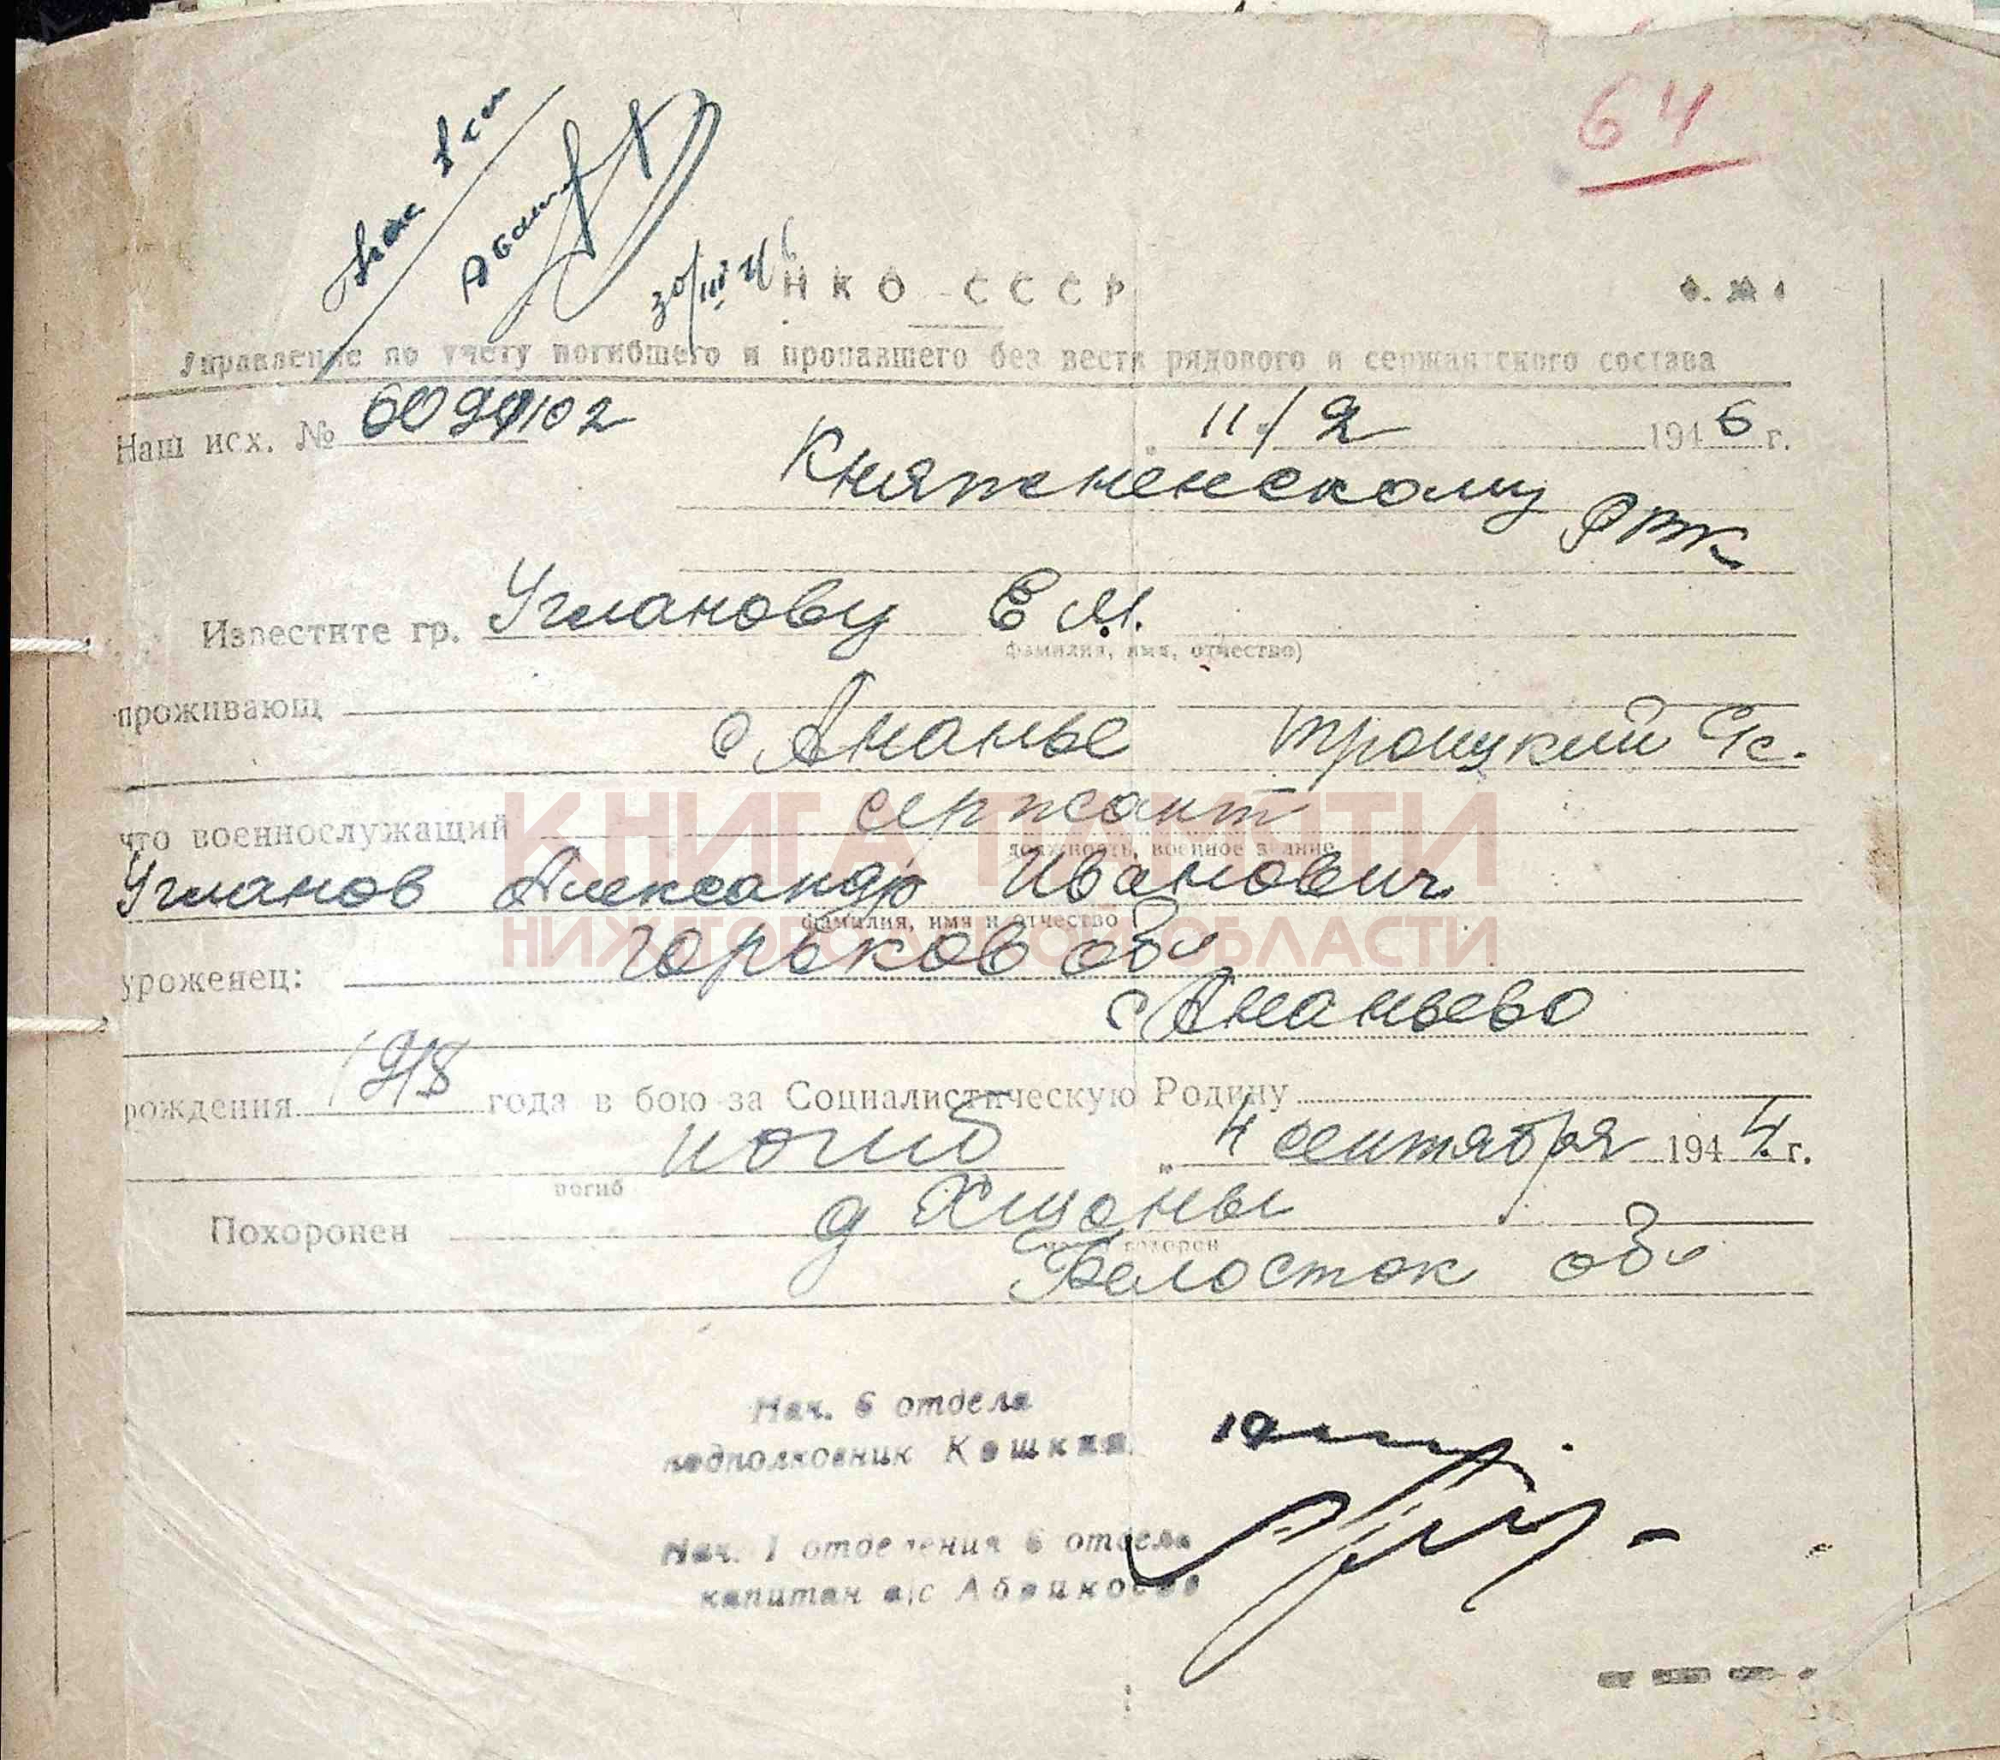 64
30/III 46
НКО СССР
Ф. № 4
Управление по учету погибшего и пропавшего без вести рядового и сержантского состава
Наш исх. № 609102
„ 11/2 1946 г.
Княгиненскому РВК
Известите гр. Угланову Е М.
фамилия, имя, отчество)
проживающ
с Ананье Троицкий с/с.
что военнослужащий сержант
должность, военное звание
Угланов Александр Иванович
фамилия, имя и отчество
уроженец: Горьков обл
с Ананьево
рождения 1918 года в бою за Социалистическую Родину
погиб „ 4 сентября 1944 г.
погиб
Похоронен д Хщоны
похорон
Белосток обл
Нач. 6 отдела
подполковник Кошкин.
Нач. 1 отделения 6 отдела
капитан а/с
КНИГА ПАМЯТИ
НИЖЕГОРОДСКОЙ ОБЛАСТИ